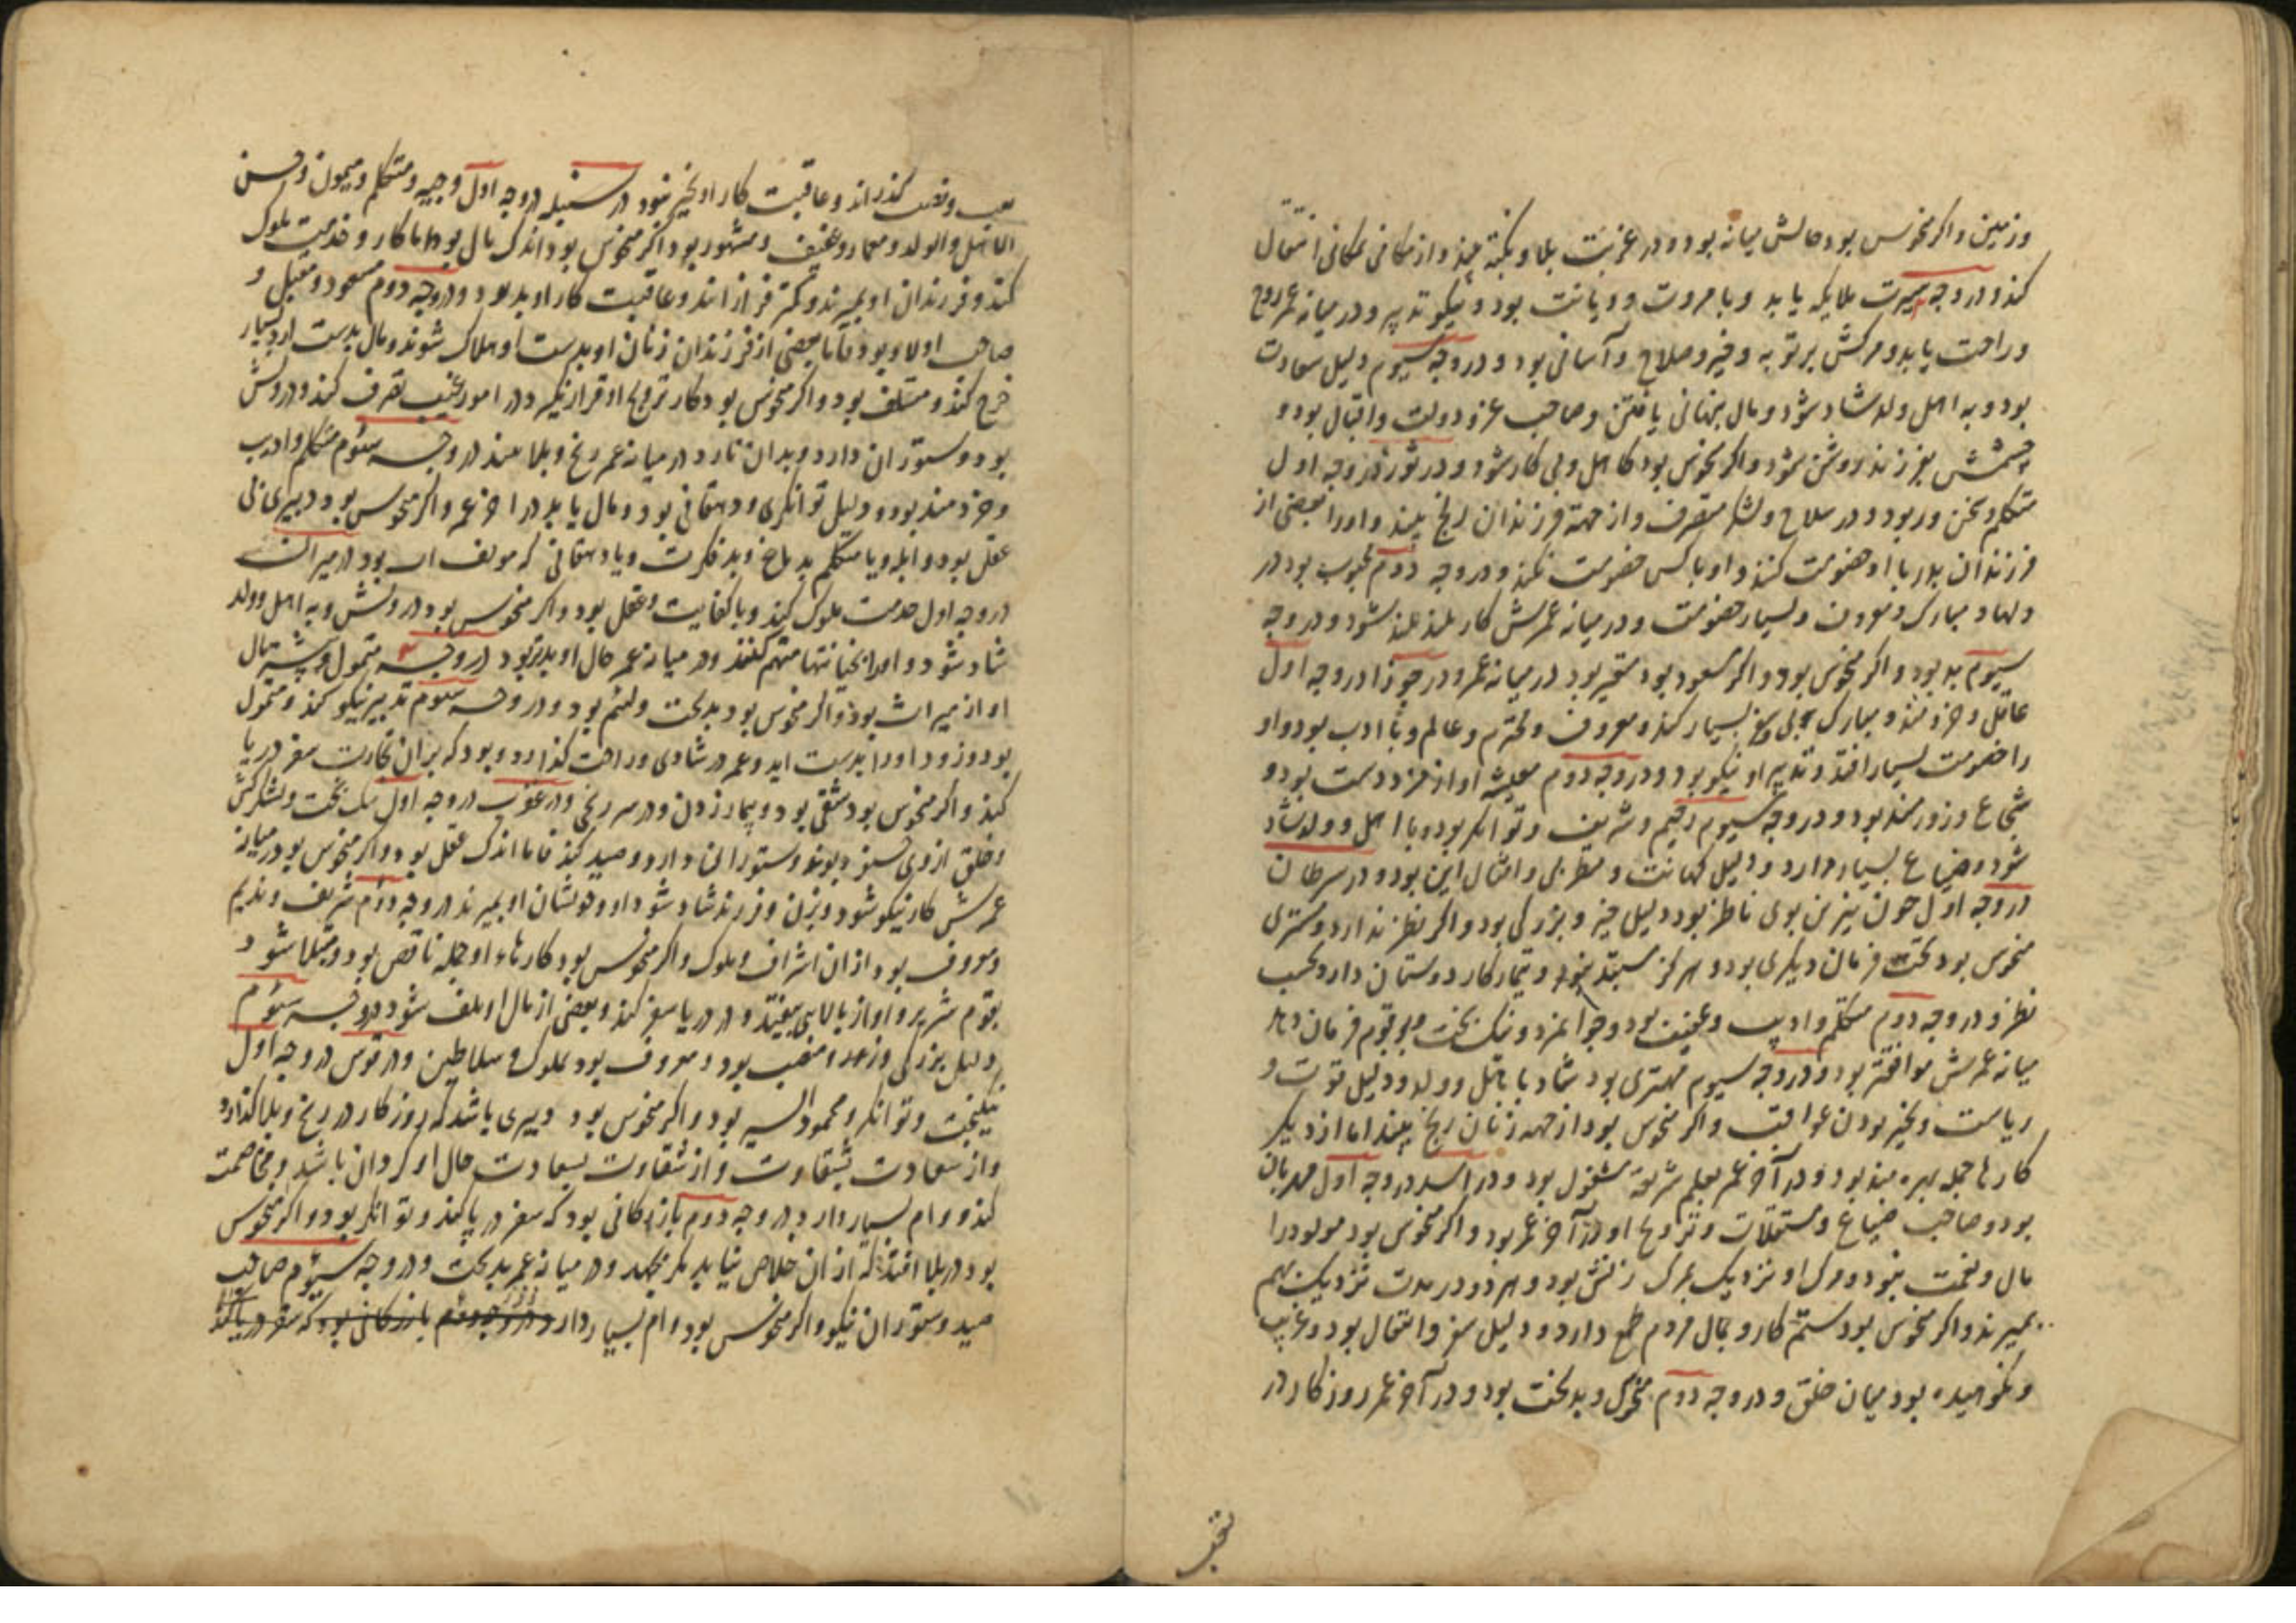 و زمین و اکر منحوس بود حالش میانه بود و در غربت بلا و نکبة بیند و از مکانی بمکانی انتقال
کند و در وجه سیرت ملایکه یابد و با مروت و دیانت بود و نیکو تدپیر و در میانه عمر روح
و راحت یابد و مرکش بر توبه و خیر و صلاح و آسانی بود و در وجه سیوم دلیل سعادت
بود و به اهل و ولد شاد شود و مال پنهانی یافتن و صاحب عز و دولت و اقبال بود و
چشمش بفرزند روشن شود و اکر منحوس بود کاهل و بی کار شود و در ثور در وجه اول
متکلم و سخن ور بود و در سلاح و لشکر متصرف و از جهة فرزندان رنج بیند و او را بعضی از
فرزندان پدر با او خصومت کنند و او با کس خصومت نکند و در وجه دوم محبوب بود در
دلها و مبارک و معروف و بسیار خصومت و در میانه عمرش کار بلند بلند شود و در وجه
سیوم بد بود و اکر منحوس بود و اکر مسعود بود متحیر بود در میانه عمر و در جوزا در وجه اول
عاقل و خردمند و مبارک پی و سفر بسیار کند و معروف و محترم و عالم و با ادب بود و او
را خصومت بسیار افتد و تدپیر او نیکو بود و در وجه دوم معیشة او از مزد دست بود و
شجاع و زورمند بود و در وجه سیوم رحیم و شریف و توانکر بود و با اهل و ولد شاد
شود و ضیاع بسیار دارد و دلیل کهانت و مطربی و امثال این بود و در سرطان
در وجه اول چون نیرین بوی ناظر بود دلیل خیر و بزرکی بود و اکر نظر ندارد و مشتری
منحوس بود تحت فرمان دیکری بود و هرکز مستبد نبود و تیمار کار دوستان دارد بحسب
نظر و در وجه دوم متکلم و ادیب و عفیف بود و جوانمرد و نیک بخت و بر قوم فرمان دهد
میانه عمرش موافقتر بود و در وجه سیوم مهتری بود شاد با باهل و ولد و دلیل قوت و
ریاست و بخیر بودن عواقب و اکر منحوس بود از جهه زنان رنج بیند اما از دیکر
کارها جمله بهره مند بود و در آخر عمر بعلم شریعة مشغول بود و در اسد در وجه اول مهربان
بود و صاحب ضیاع و مستغلات و تزویج او در آخر عمر بود و اکر منحوس بود مولود را
مال و نعمت نبود و مرک او نزدیک بمرک زنش بود و هر دو در مدت نزدیک بهم
بمیرند و اکر منحوس بود ستم کار و بمال مردم طمع دارد و دلیل سفر و انتقال بود و غریب
و نکوهیده بود میان خلق و در وجه دوم متحرک و بدبخت بود و در آخر عمر روزکار در
و تعب کذراند و عاقبت کار او بخیر شود در سنبله در وجه اول وجیه و متکلم و میمون و حسن
الاهل و الولد و معمار و عفیف و مشهور بود اکر منحوس بود اندک مال بود اما کار و خدمت ملوک
کند و فرزندان او بمیرند و کمتر فرزا انند و عاقبت کار او بد بود و در وجه دوم مسعود و مقبل و
صاحب اولاد بود فاما بعضی از فرزندان زنان او بدست او هلاک شوند و مال بدست ارد بسیار
خرج کند و متلف بود و اکر منحوس بود کار تزویج او قرار نکیرد در امور غیب تصرف کند و درویش
بود و ستوران دارد و بدان نازد و در میانه عمر رنج و بلا بیند در وجه سیوم متکلم و ادیب
و خردمند بود و دلیل توانکری و دهقانی بود و مال یابد در آخر عمر و اکر منحوس بود دبیری بی
عقل بود و ابله و یا متکلم بد و بد فکرت و یا دهقانی که بود در میزان
در وجه اول خدمت ملوک کند و با کفایت و عقل بود و اکر منحوس بود درویش و به اهل و ولد
شاد شود و او را بخیانتها متهم کنند و در میانه عمر حال او بدتر بود در وجه ۲ متمول و بیشتر مال
او از میراث بود و اکر منحوس بود بدبخت و لئیم بود و در وجه سیوم تدبیر نیکو کند و متمول
بود و زود او را بدست اید و عمر در شادی و راحت کذارد و بود که بران تجارت سفر دریا
کند و اکر منحوس بود شقی بود و بیمار زدن و در سر رنجی و در عقرب در وجه اول نیک بخت و لشکرکش
و خلق از وی بوند و ستوران دارد و صید کند فاما اندک عقل بود و اکر منحوس بود در میانه
عمرش کار نیکو شود و بزن و فرزند شاد شود و او و خویشان او بمیرند در وجه دوم شریف و ندیم
و معروف بود از ان اشراف و ملوک و اکر منحوس بود کارهاء او جمله ناقص بود و مبتلا شود
بقوم شریر و او از بالایی بیفتد و در دریا سفر کند و بعضی از مال او تلف شود در وجه سیوم
دلیل بزرکی و منصب بود و معروف بود بملوک و سلاطین و در قوس در وجه اول
نیکبخت و توانکر و محمود السیر بود و اکر منحوس بود دبیری باشد که روزکار در رنج و بلا کذارد
و از سعادت بشقاوت و از شقاوت بسعادت حال او کردان باشد و مخاصمت
کند و وام بسیار دارد و در وجه دوم بازرکانی بود که سفر دریا کند و توانکر بود و اکر منحوس
بود در بلا افتد که از ان خلاص نیابد مکر بجهد و در میانه عمر بدبخت و در وجه سیوم صاحب
صید و ستوران نیکو و اکر منحوس بود وام بسیار دارد و در وجه دوم بازرکانی بود که سفر دریا کند
بتحیر